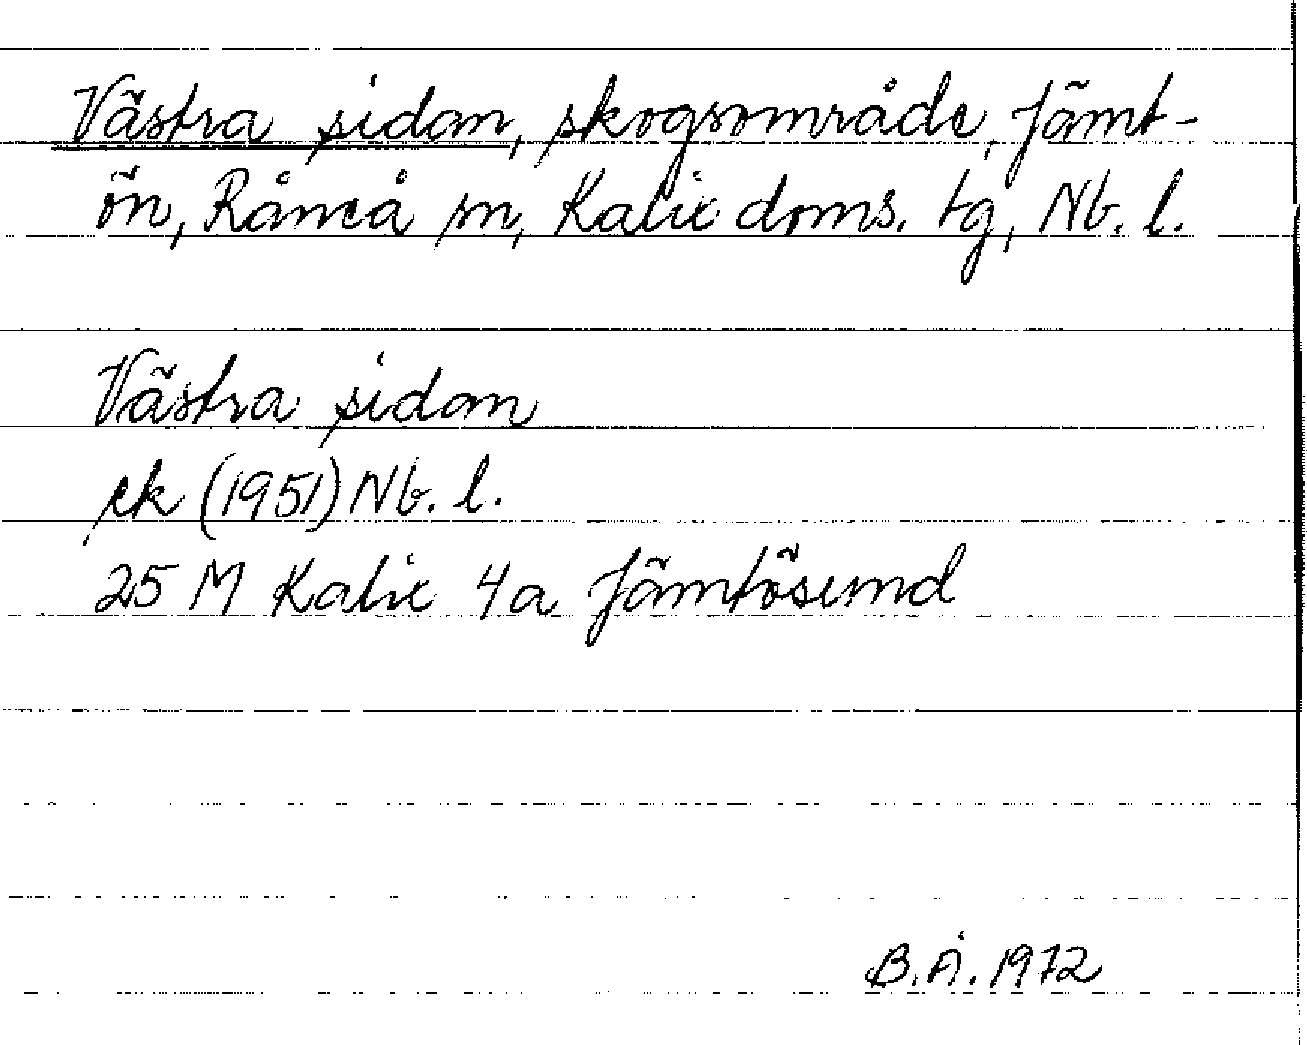 Västra sidan, skogsområde, Jämt-
ön, Råneå sn, Kalix doms. tg, Nb. l.
Västra sidan
ek (1951) Nb. l.
25 M Kalix 4a Jämtösund
B.Å. 1972